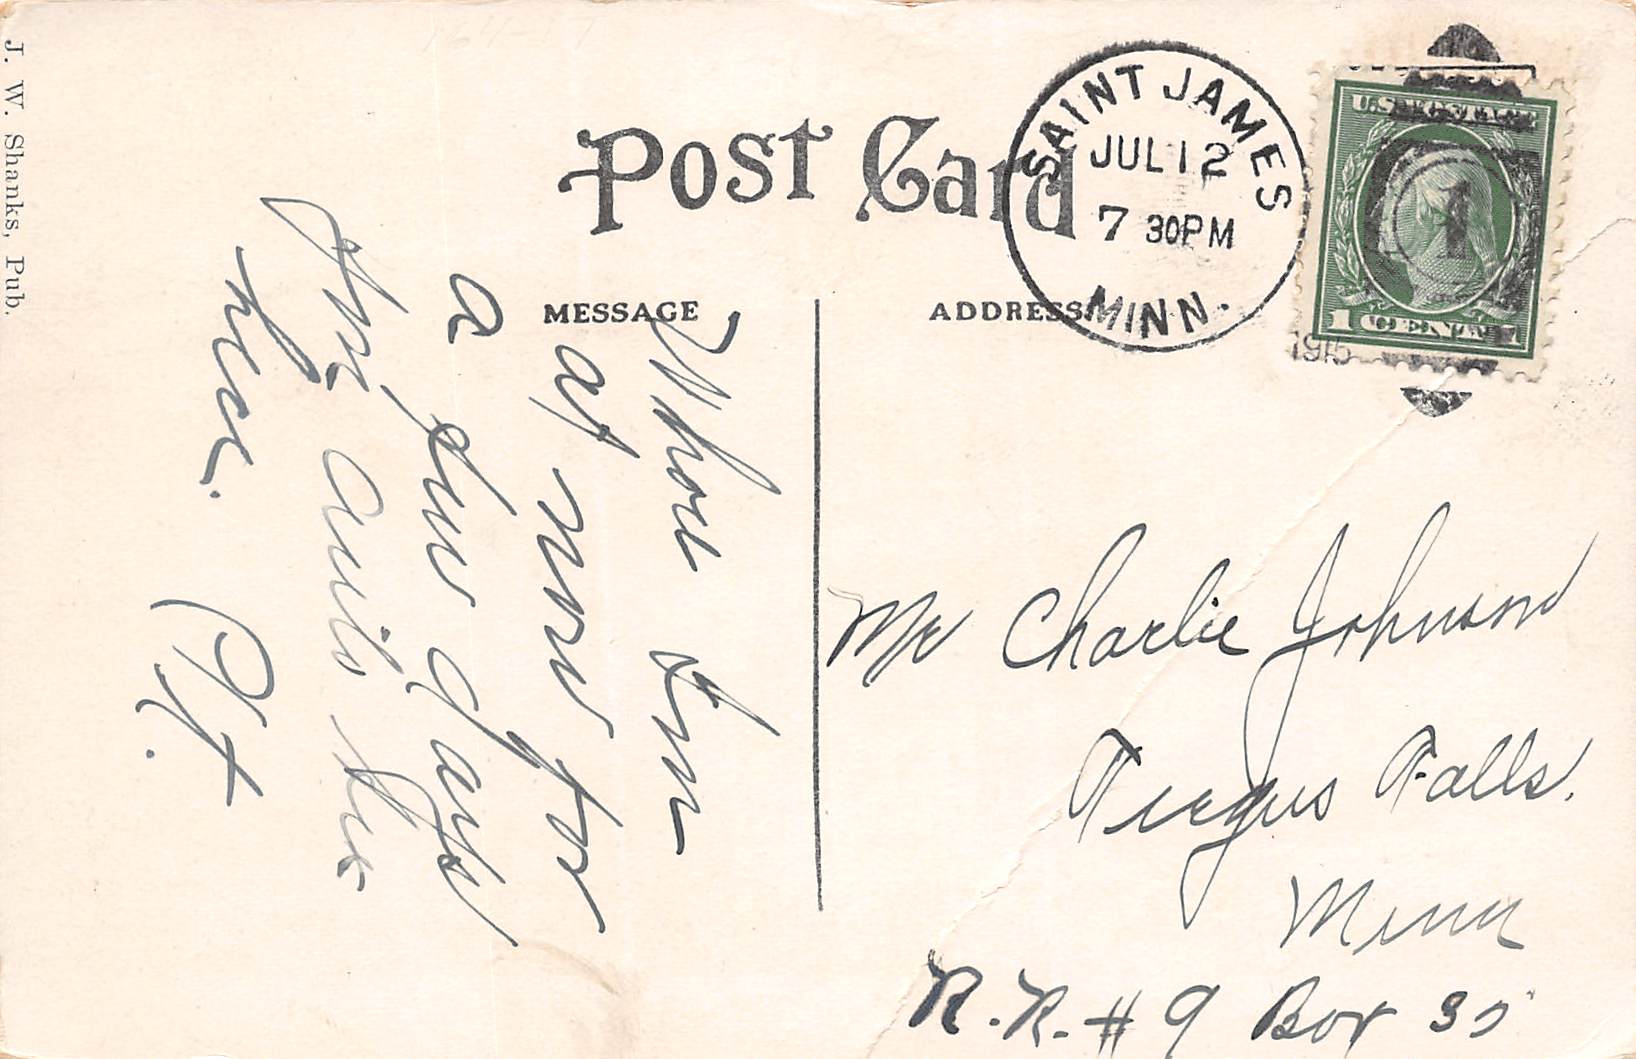 Post Card
SAINT JAMES
JUL 12
7 30PM
MINN.
1915
U.S. POSTAGE
1
1 CENT 1
MESSAGE
ADDRESS
J. W. Shanks, Pub.
Where Im
at now for
a few days
this
here.
Mr Charlie Johnson
Fergus Falls.
Minn
R.R. # 9 Box 35